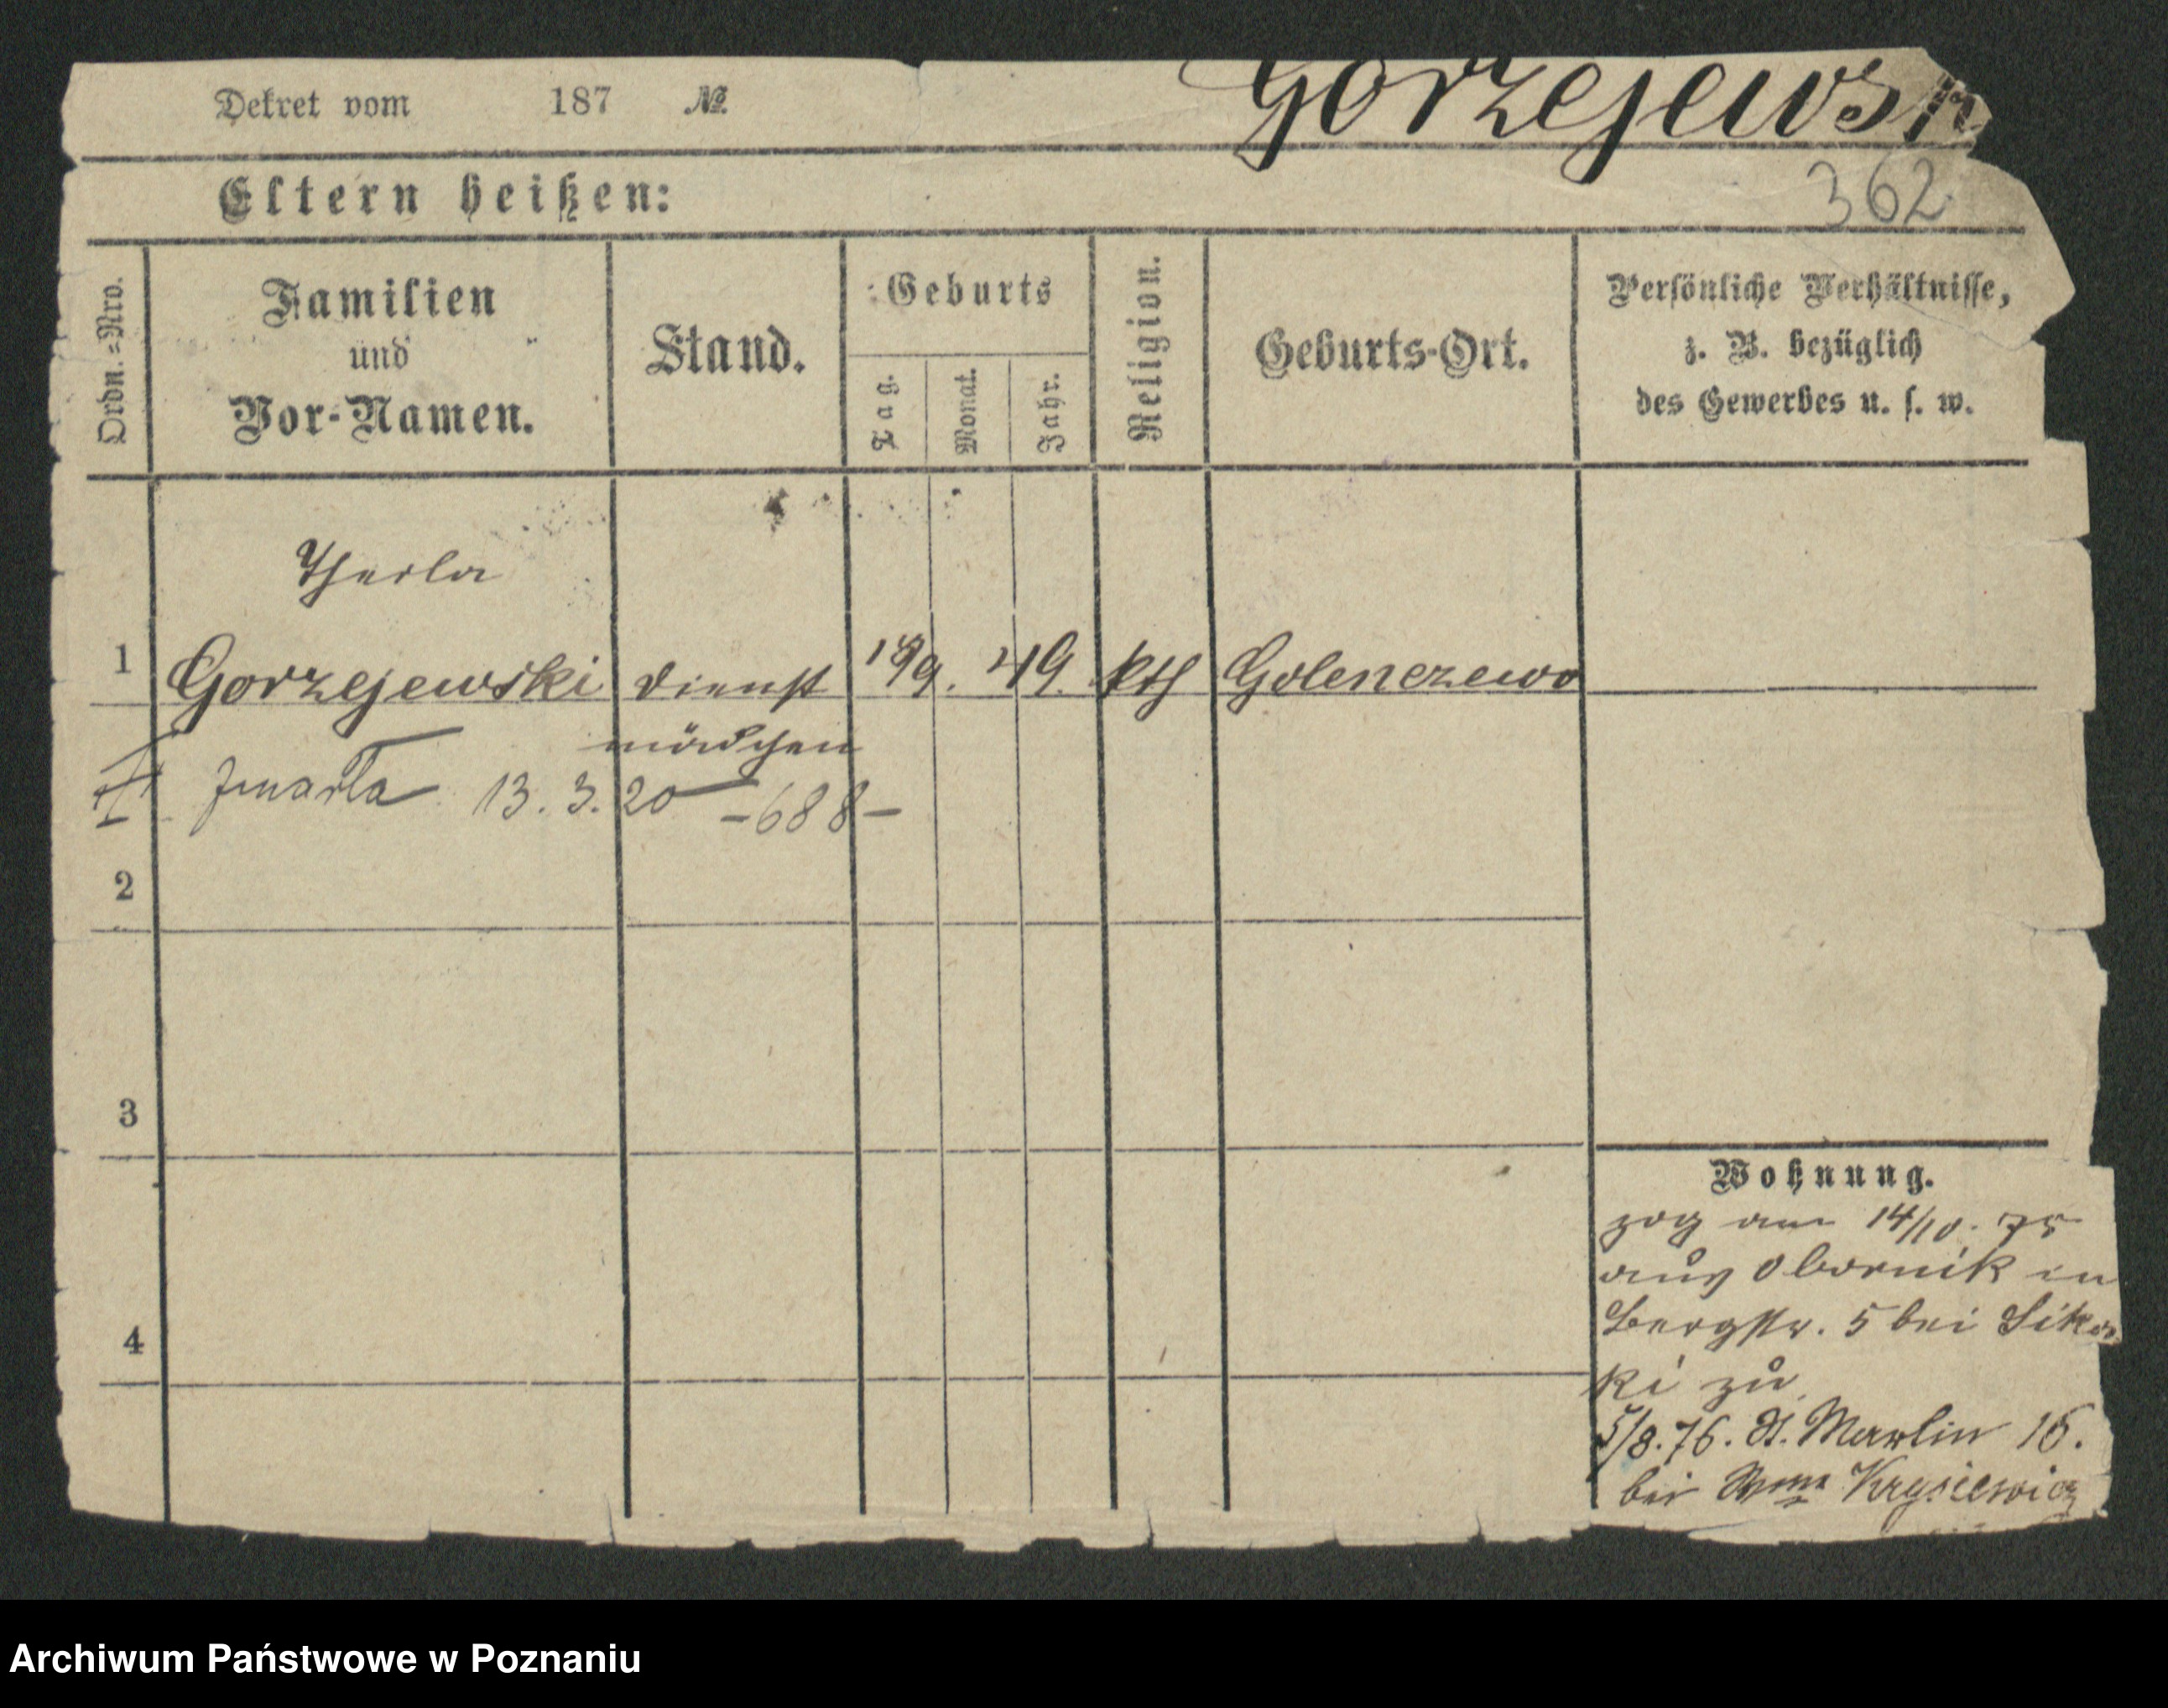 Dekret vom 187 №
Gorzejewsk
Eltern heißen:
362
Ordn.=Nro.
Familien
und
Vor-Namen.
Stand.
Geburts
Tag.
Monat.
Jahr.
Religion.
Geburts-Ort.
Persönliche Verhältnisse,
z. B. bezüglich
des Gewerbes u. s. w.
Thekla
1 Gorzejewski Dienst 49. kth Golenczewo
mädchen
zmarła 13. 3. 20 -688-
2
3
4
Wohnung.
zog am 14/10. 75
aus Obornik in
Bergstr. 5 bei Sikor
ki zu
5/8. 76. St. Martin
bei Krysiewicz
Archiwum Państwowe w Poznaniu